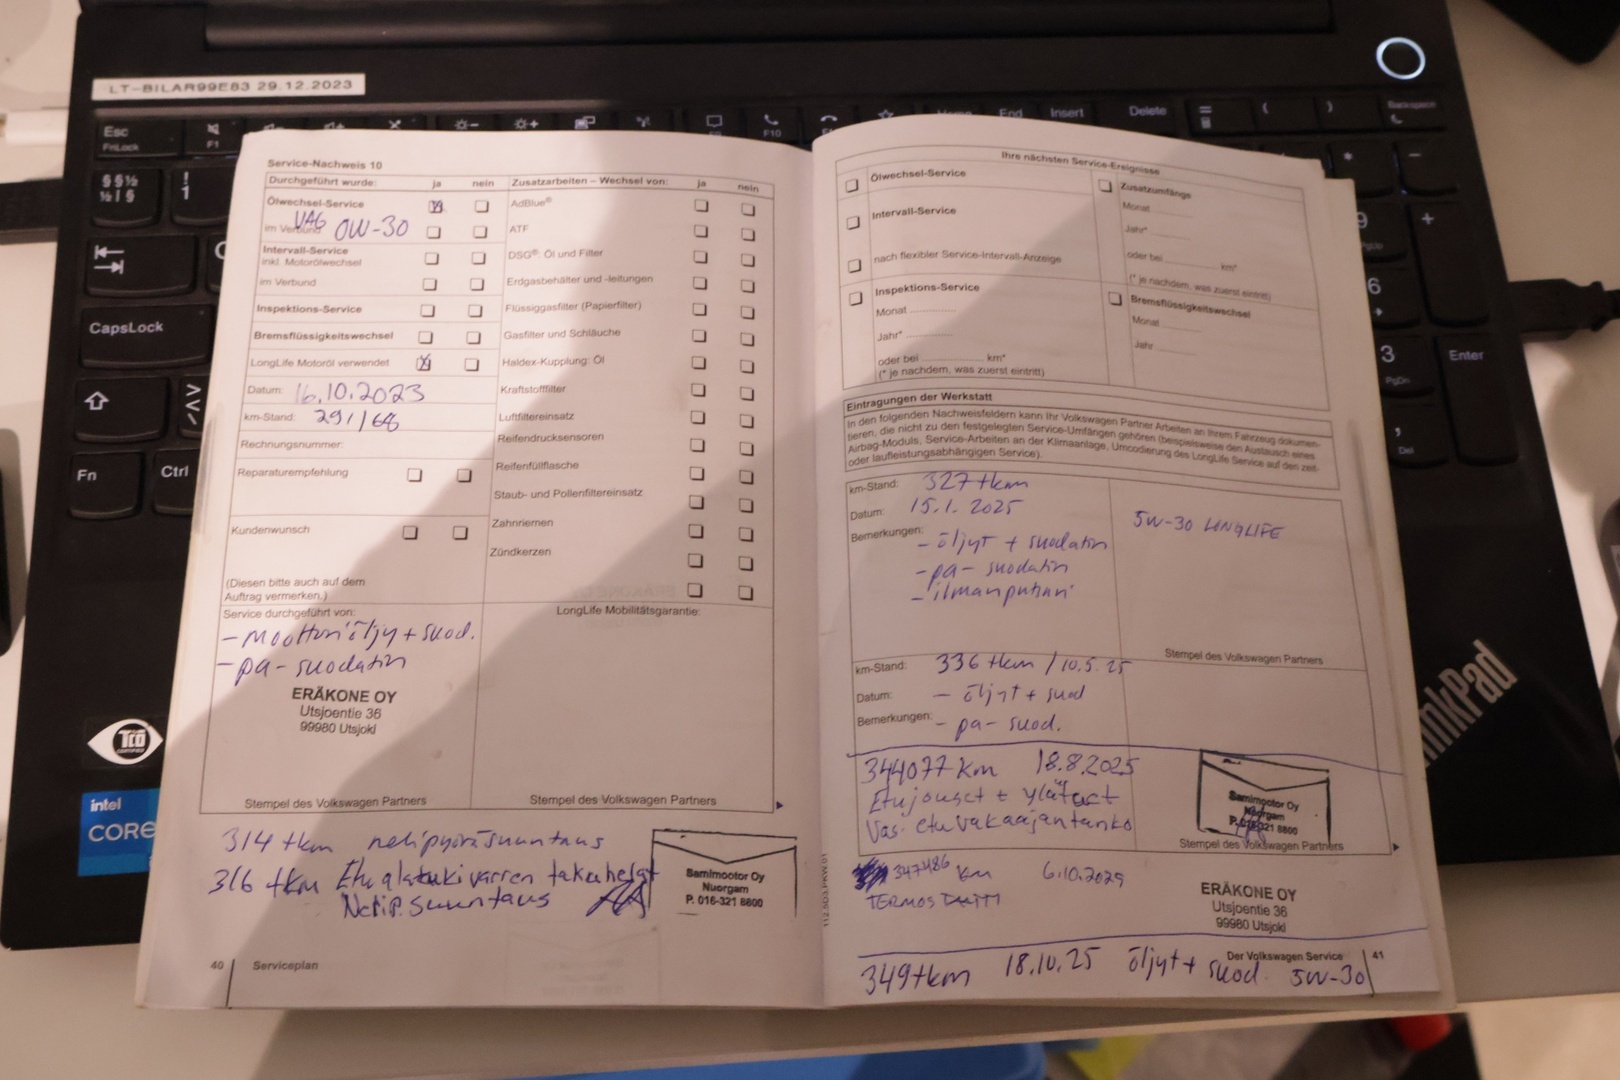 LT-BILAR99E83 29.12.2023
Esc
FnLock
F1
F10
Home
End
Insert
Delete
Backspace
CapsLock
Fn
Ctrl
Enter
PgDn
Del
intel
CORE
ThinkPad
Service-Nachweis 10
Durchgeführt wurde: ja nein
Ölwechsel-Service
im Verbund
VAG 0W-30
Intervall-Service
inkl. Motorölwechsel
im Verbund
Inspektions-Service
Bremsflüssigkeitswechsel
LongLife Motoröl verwendet
Datum: 16.10.2023
km-Stand: 291168
Rechnungsnummer:
Reparaturempfehlung
Kundenwunsch
(Diesen bitte auch auf dem
Auftrag vermerken.)
Service durchgeführt von:
- Moottoriöljy + suod.
- pa-suodatin
ERÄKONE OY
Utsjoentie 36
99980 Utsjoki
Stempel des Volkswagen Partners
Zusatzarbeiten – Wechsel von: ja nein
AdBlue®
ATF
DSG®: Öl und Filter
Erdgasbehälter und -leitungen
Flüssiggasfilter (Papierfilter)
Gasfilter und Schläuche
Haldex-Kupplung: Öl
Kraftstofffilter
Luftfiltereinsatz
Reifendrucksensoren
Reifenfüllflasche
Staub- und Pollenfiltereinsatz
Zahnriemen
Zündkerzen
LongLife Mobilitätsgarantie:
Stempel des Volkswagen Partners
314 tkm nelipyöräsuuntaus
316 tkm Etu alatukivarren takahelat
Nelip. suuntaus
Samimootor Oy
Nuorgam
P. 016-321 8800
40 Serviceplan
Ihre nächsten Service-Ereignisse
Ölwechsel-Service
Intervall-Service
nach flexibler Service-Intervall-Anzeige
Inspektions-Service
Monat
Jahr*
oder bei km*
(* je nachdem, was zuerst eintritt)
Zusatzumfänge
Monat
Jahr*
oder bei km*
(* je nachdem, was zuerst eintritt)
Bremsflüssigkeitswechsel
Monat
Jahr
Eintragungen der Werkstatt
In den folgenden Nachweisfeldern kann Ihr Volkswagen Partner Arbeiten an Ihrem Fahrzeug dokumen-
tieren, die nicht zu den festgelegten Service-Umfängen gehören (beispielsweise den Austausch eines
Airbag-Moduls, Service-Arbeiten an der Klimaanlage, Umcodierung des LongLife Service auf den zeit-
oder laufleistungsabhängigen Service).
km-Stand: 327 tkm
Datum: 15.1.2025
Bemerkungen: - öljyt + suodatin
- pa-suodatin
- ilmanputsari
5W-30 LONGLIFE
Stempel des Volkswagen Partners
km-Stand: 336 tkm / 10.5.25
Datum: - öljyt + suod
Bemerkungen: - pa-suod.
344077 km 18.8.2025
Etujouset + ylätuet
Vas. etuvakaajantanko
Samimootor Oy
Nuorgam
P. 016-321 8800
Stempel des Volkswagen Partners
347486 km 6.10.2025
TERMOSTAATTI
ERÄKONE OY
Utsjoentie 36
99980 Utsjoki
Der Volkswagen Service 41
349tkm 18.10.25 öljyt + suod. 5W-30